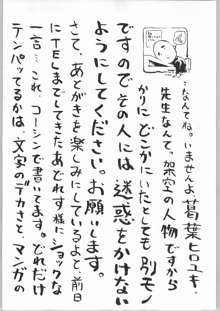 なんてね。いませんよ、葛葉ヒロユキ。
先生なんて。架空の人物ですから
かりにどこかにいたとしても別モノ
ですのでその人には迷惑をかけない
ようにしてください。お願いします。
さて、あとがきを楽しみにしているよと、前日
にTELまでしてきたあどれす様にショックな
一言…これ、コーシンで書いてます。どれだけ
テンパッてるかは、文字のデカさと、マンガの